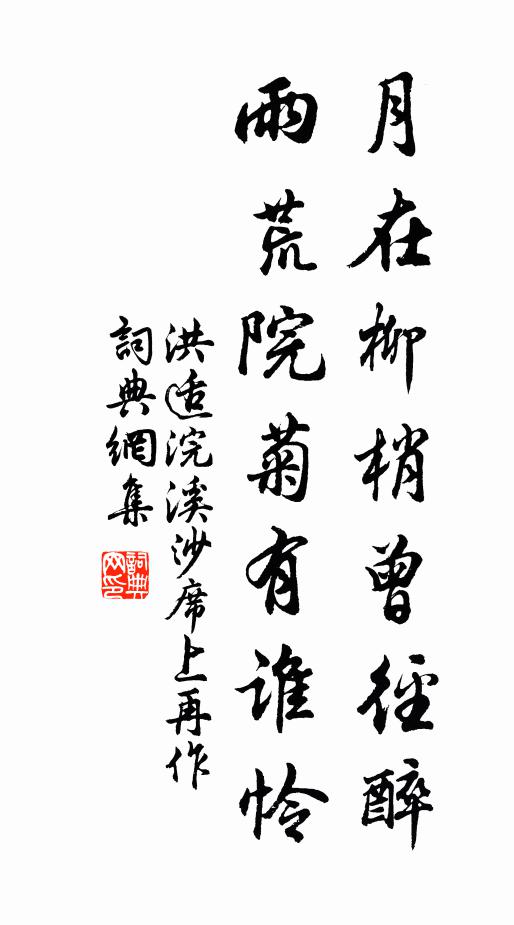 月在柳梢曾徑醉
雨荒院菊有誰怜
洪适浣溪沙席上再作
詞典網集
詞典
网印